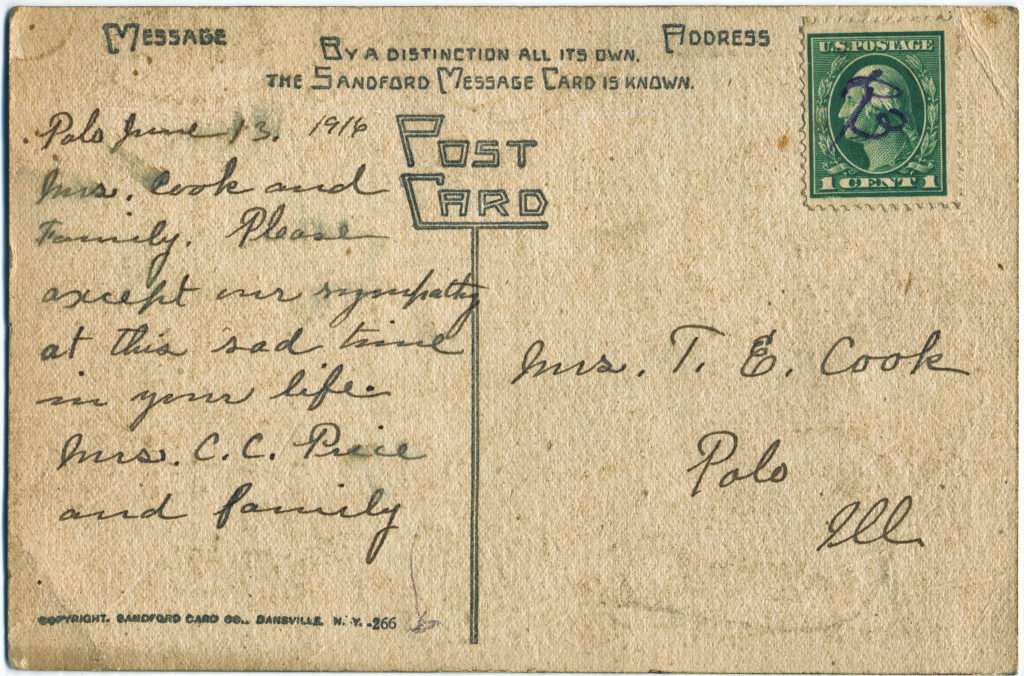 MESSAGE
BY A DISTINCTION ALL ITS OWN.
THE SANDFORD MESSAGE CARD IS KNOWN.
ADDRESS
U.S. POSTAGE
1 CENT 1
POST
CARD
Polo June 13. 1916
Mrs. Cook and
Family. Please
except our sympathy
at this sad time
in your life.
Mrs. C. C. Price
and family
Mrs. T. E. Cook
Polo
Ill
COPYRIGHT. SANDFORD CARD CO., DANSVILLE, N. Y. -266